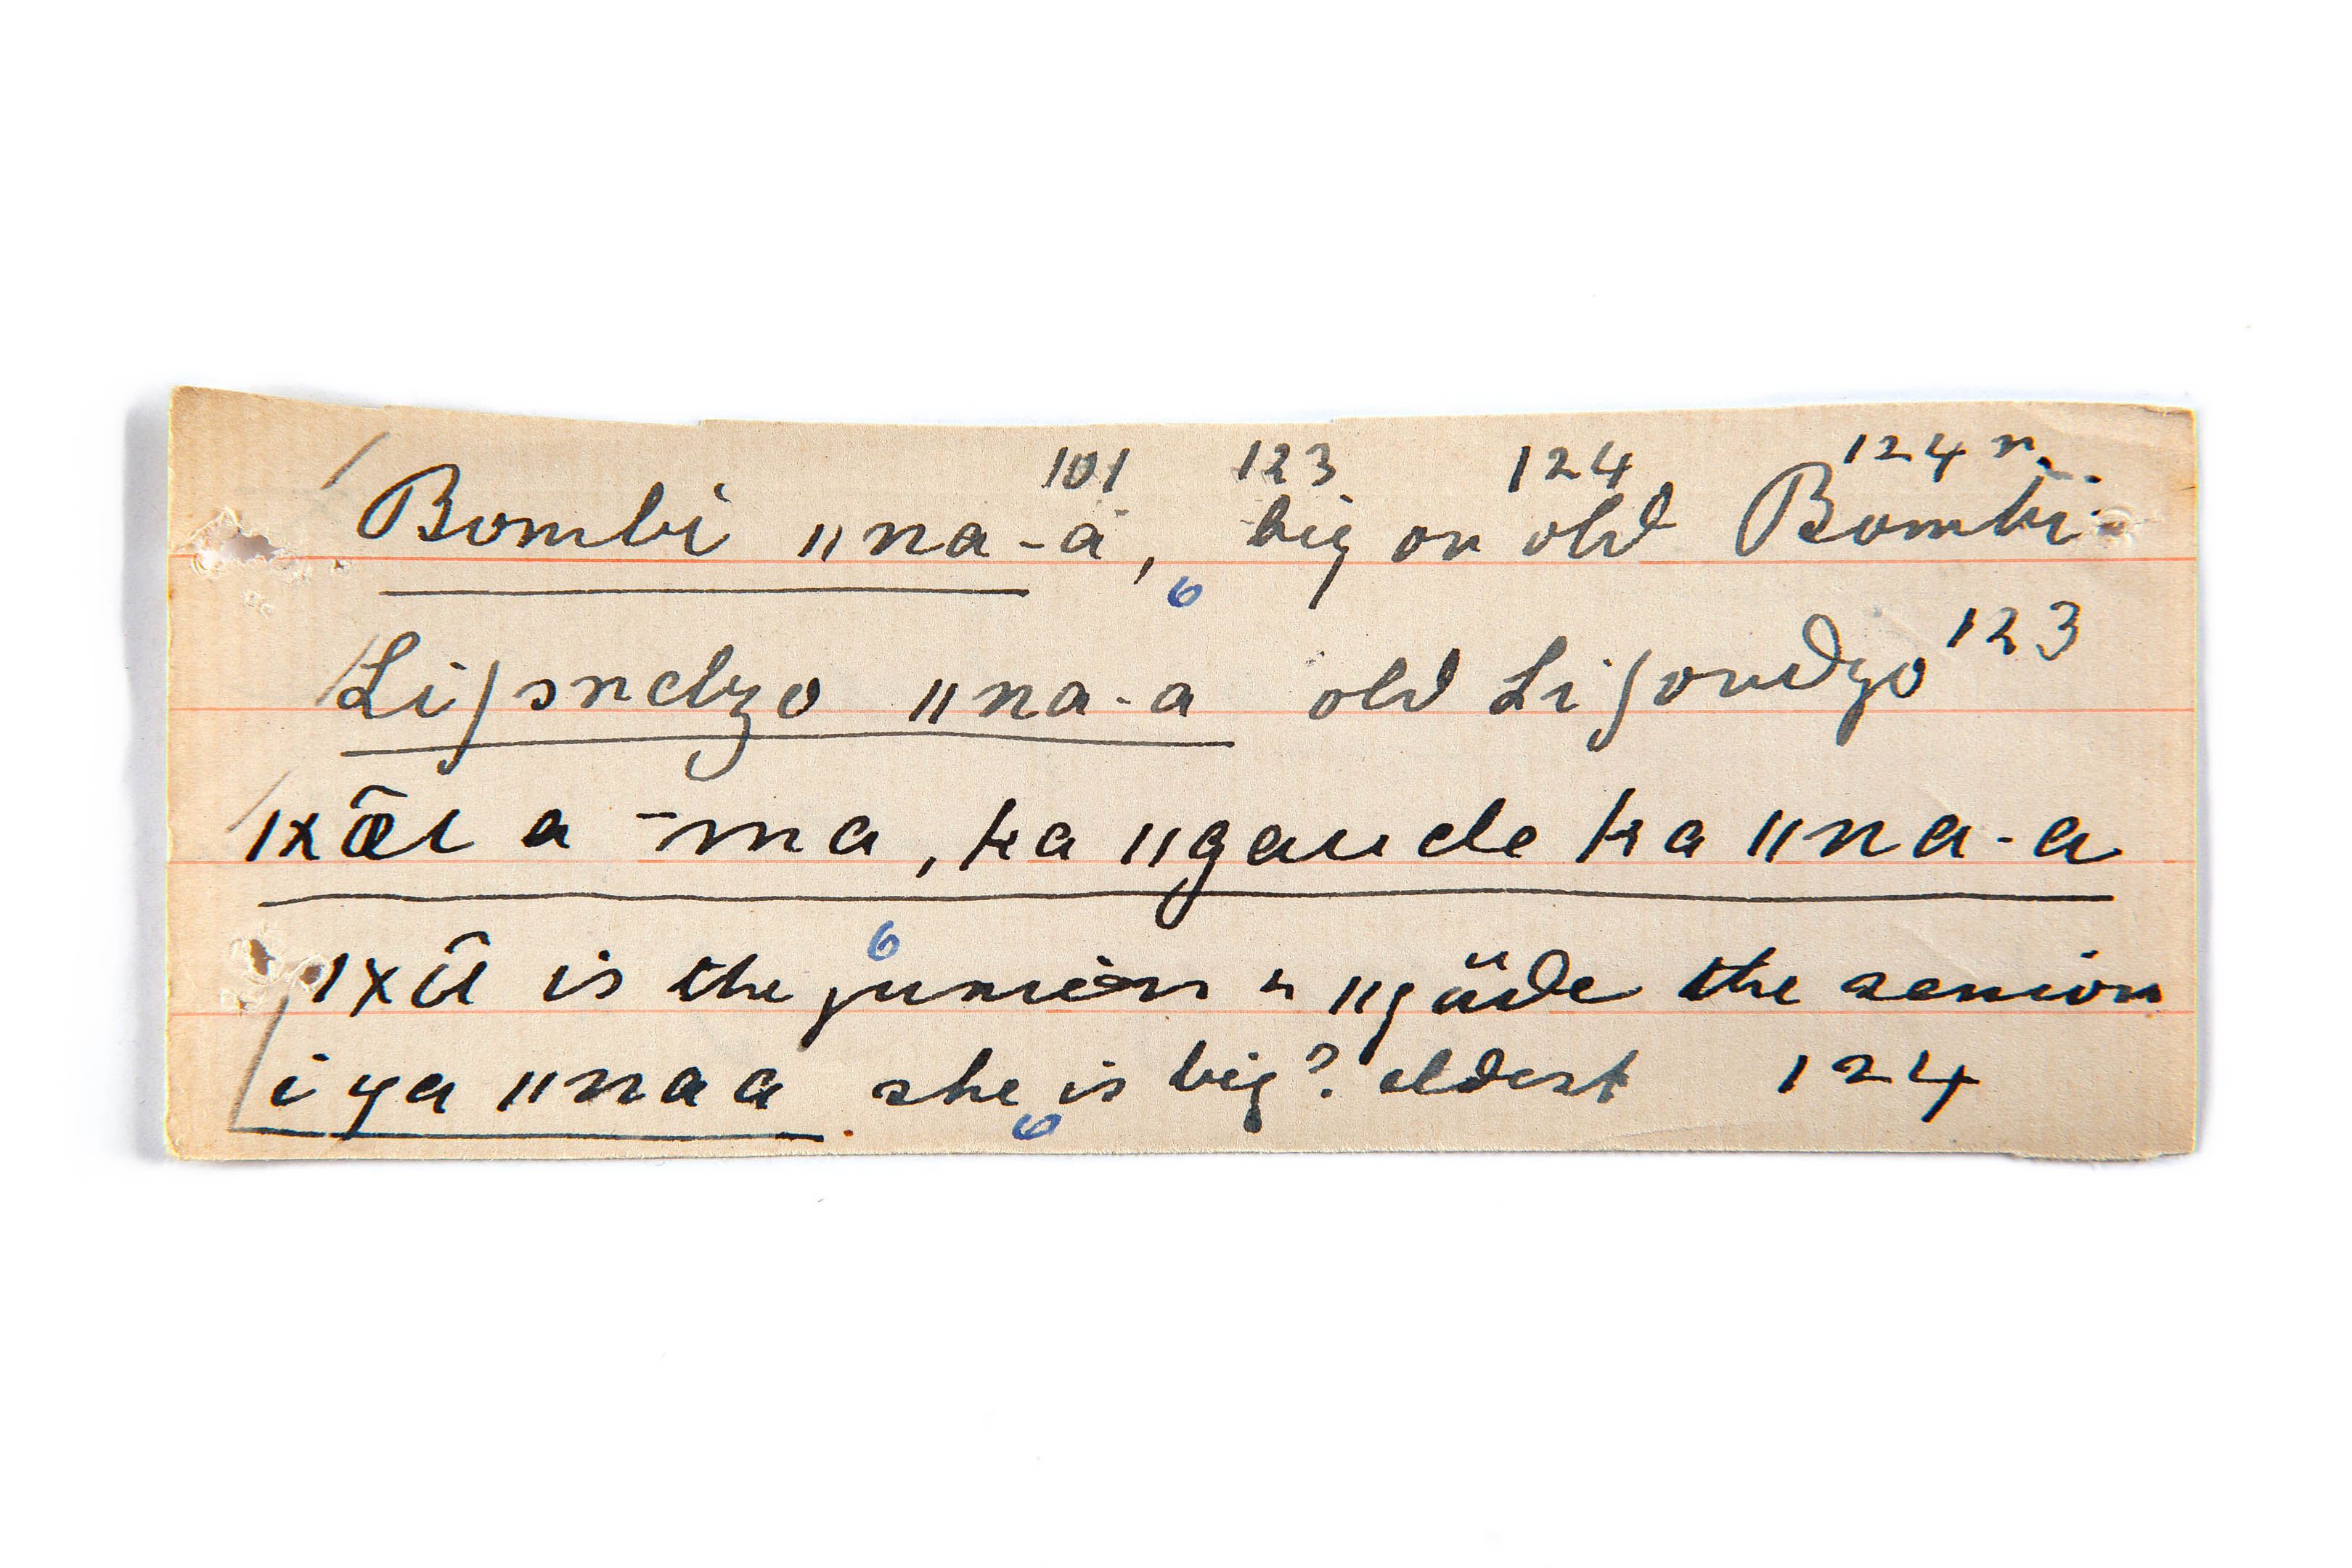 101 123 124 124 n.
Bombi ǁna-a, big or old Bombi
6
Liʃɔndzo ǁna-a old Liʃondzo 123
ǀxâɪ a -ma, ka ǁgaude ka ǁna-a
6
ǀxâ is the junior & ǁgäde the senior
i ya ǁnaa she is big? eldest 124
6